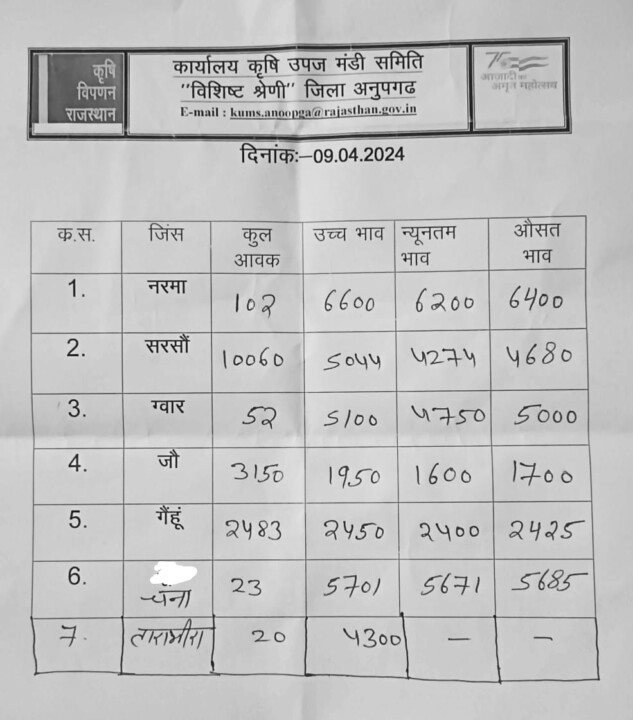 कृषि
विपणन
राजस्थान
कार्यालय कृषि उपज मंडी समिति
"विशिष्ट श्रेणी" जिला अनुपगढ
E-mail : kums.anoopga@rajasthan.gov.in
75
आजादी का
अमृत महोत्सव
दिनांक:–09.04.2024
क.स. जिंस कुल आवक उच्च भाव न्यूनतम भाव औसत भाव
1. नरमा 102 6600 6200 6400
2. सरसौं 10060 5044 4274 4680
3. ग्वार 52 5100 4750 5000
4. जौ 3150 1950 1600 1700
5. गैंहूं 2483 2450 2400 2425
6. चना 23 5701 5671 5685
7. तारामीरा 20 4300 – –